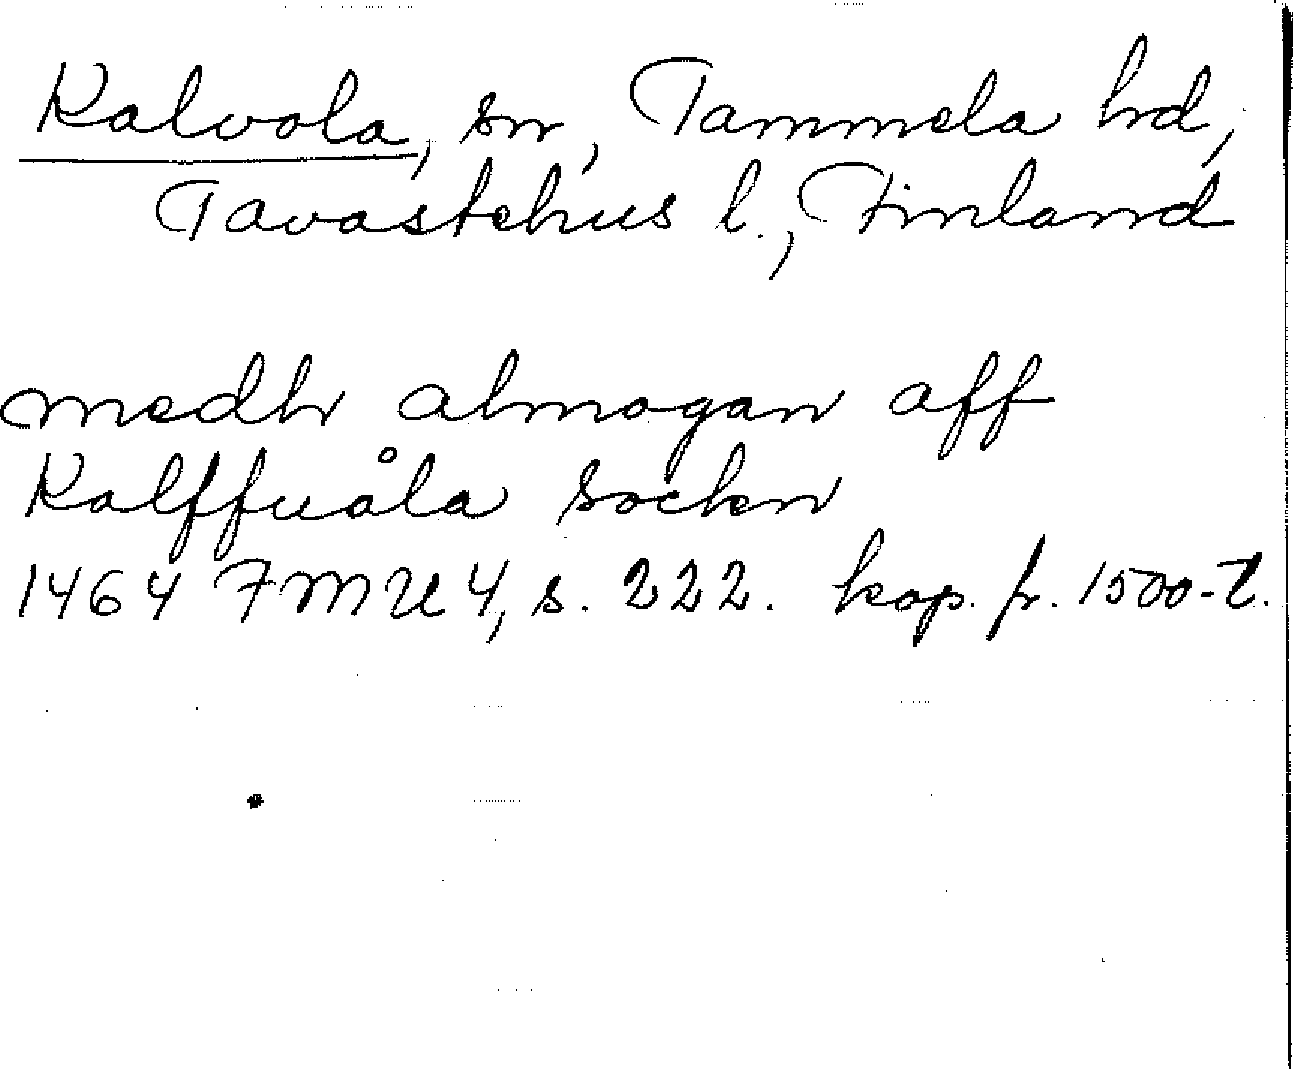 Kalvola, sn, Tammela hd,
Tavastehus l., Finland
medh almogan aff
Kalffuåla sockn
1464 FMU 4, s. 222. kop. fr. 1500-t.